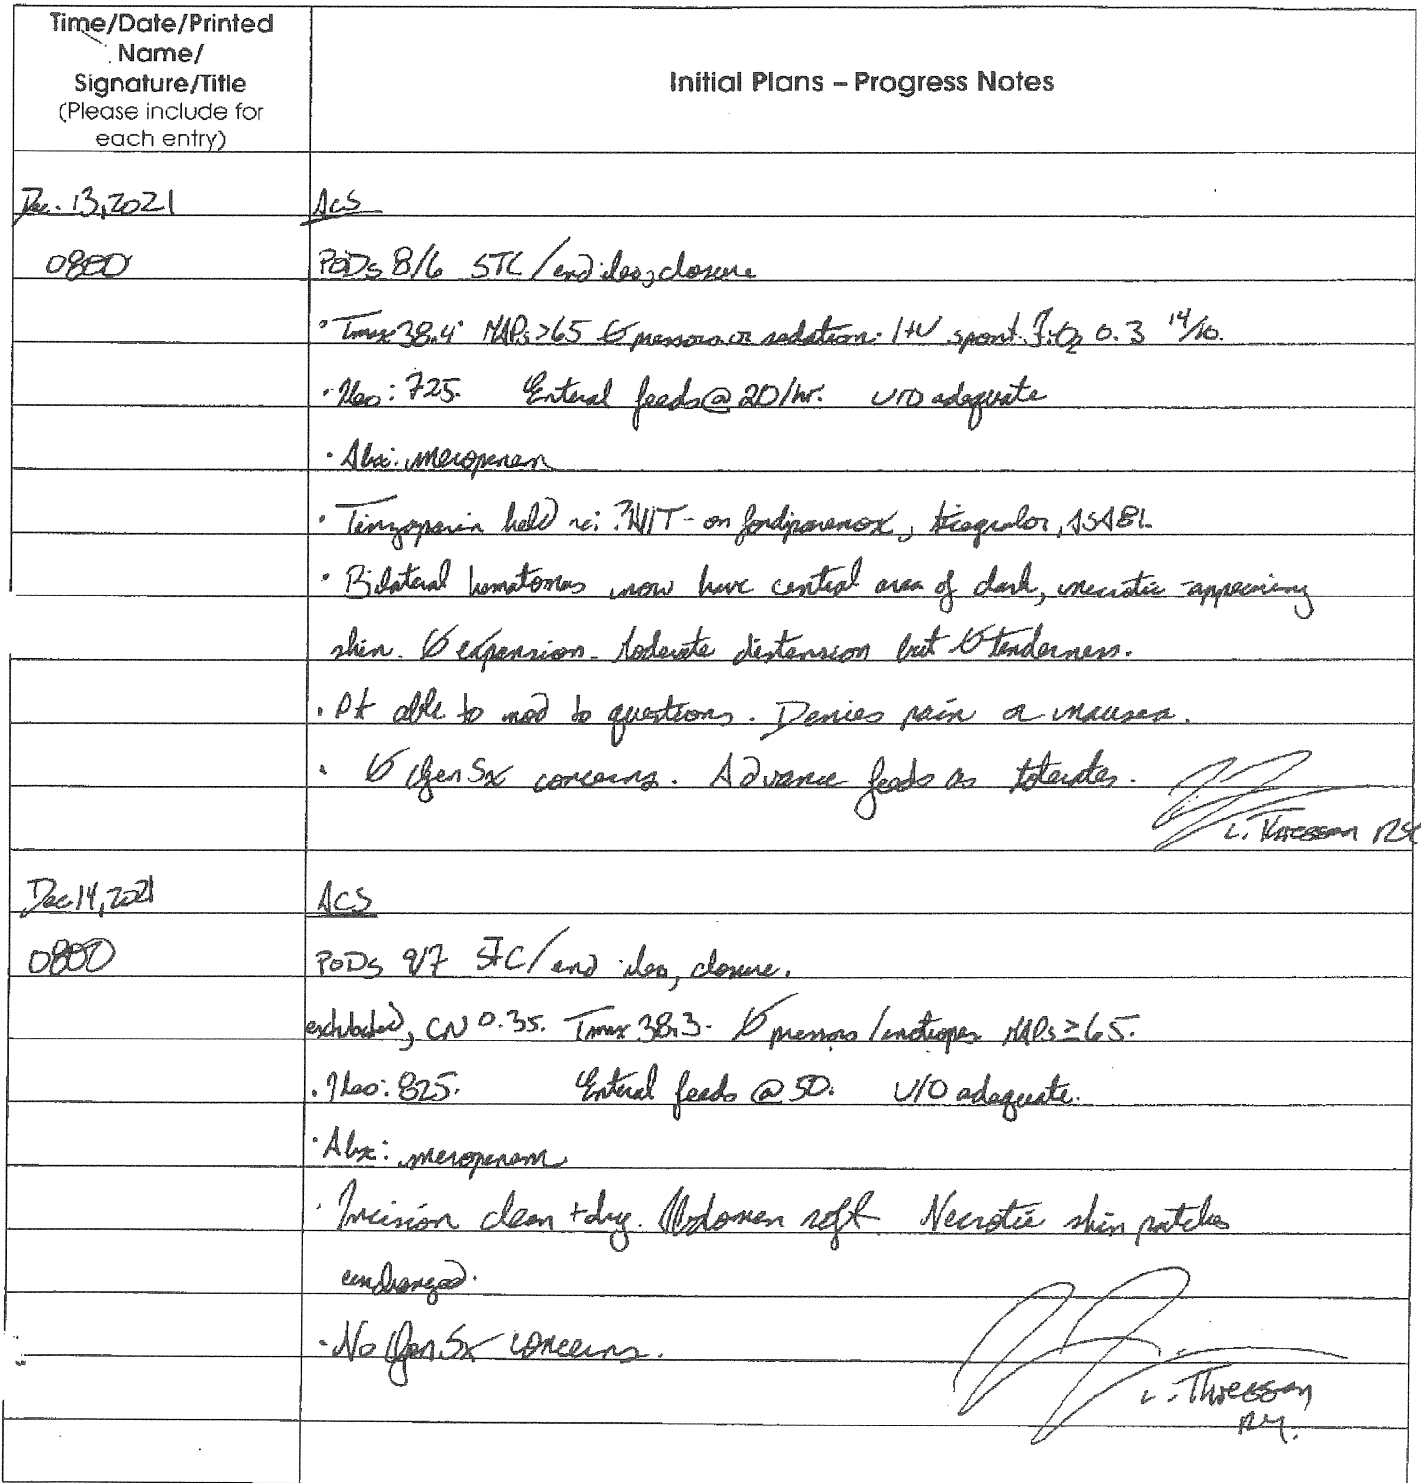 Time/Date/Printed
Name/
Signature/Title
(Please include for
each entry)
Initial Plans – Progress Notes
Dec. 13, 2021
ACS
0800
PODs 8/6 STC/end ileo, closure
• Tmax 38.4° MAPs >65 ∅ pressors or sedation. spont. FiO2 0.3 14/10.
• Ileo: 725. Enteral feeds @ 20/hr. U/O adequate
• Abx: meropenem
• Tinzaparin held re: ?HIT - on , ticagrelor, ASA 81.
• Bilateral hematomas now have central area of dark, necrotic-appearing
skin. ∅ expansion. Moderate distension but ∅ tenderness.
• Pt able to nod to questions. Denies pain or nausea.
• ∅ Gen Sx concerns. Advance feeds as tolerates.
L.
Dec 14, 2021
ACS
0800
PODs 9/7 STC/end ileo, closure.
extubated, 0.35. Tmax 38.3. ∅ pressors/inotropes MAPs ≥65.
• Ileo: 825. Enteral feeds @ 50. U/O adequate.
• Abx: meropenem
• Incision clean + dry. Abdomen soft Necrotic skin patches
unchanged.
• No Gen Sx concerns.
L.